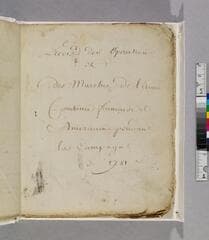 Des Opérations
et
des Marches de l'armée
Combinée française et
Américaine pendant
la Campagne
de 1781